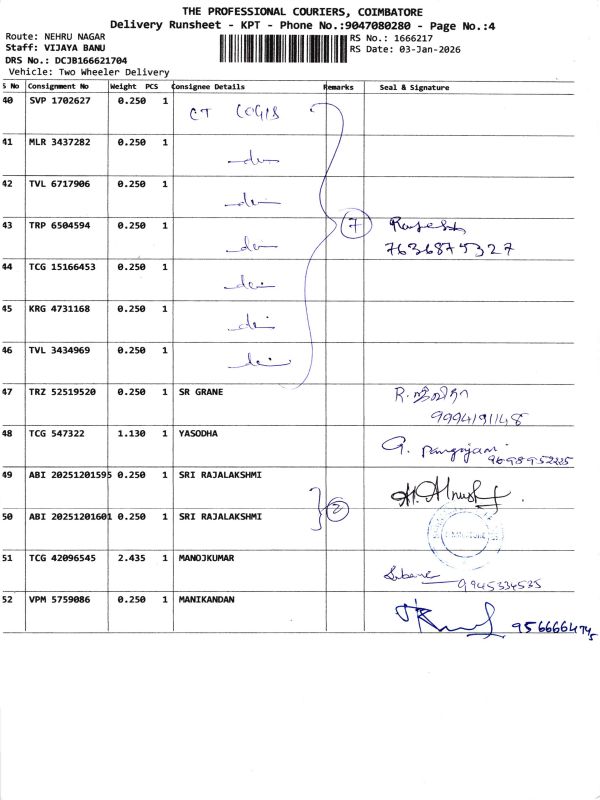 THE PROFESSIONAL COURIERS, COIMBATORE
Delivery Runsheet - KPT - Phone No.:9047080280 - Page No.:4
Route: NEHRU NAGAR
Staff: VIJAYA BANU
DRS No.: DCJB166621704
Vehicle: Two Wheeler Delivery
RS No.: 1666217
RS Date: 03-Jan-2026
S No Consignment No Weight PCS Consignee Details Remarks Seal & Signature
40 SVP 1702627 0.250 1 CT
41 MLR 3437282 0.250 1
42 TVL 6717906 0.250 1
43 TRP 6504594 0.250 1 7 Rajesh
7636875327
44 TCG 15166453 0.250 1
45 KRG 4731168 0.250 1
46 TVL 3434969 0.250 1
47 TRZ 52519520 0.250 1 SR GRANE R.
9994191148
48 TCG 547322 1.130 1 YASODHA G.
9698952225
49 ABI 20251201595 0.250 1 SRI RAJALAKSHMI
50 ABI 20251201601 0.250 1 SRI RAJALAKSHMI 2
51 TCG 42096545 2.435 1 MANOJKUMAR
9945334535
52 VPM 5759086 0.250 1 MANIKANDAN
9566664745